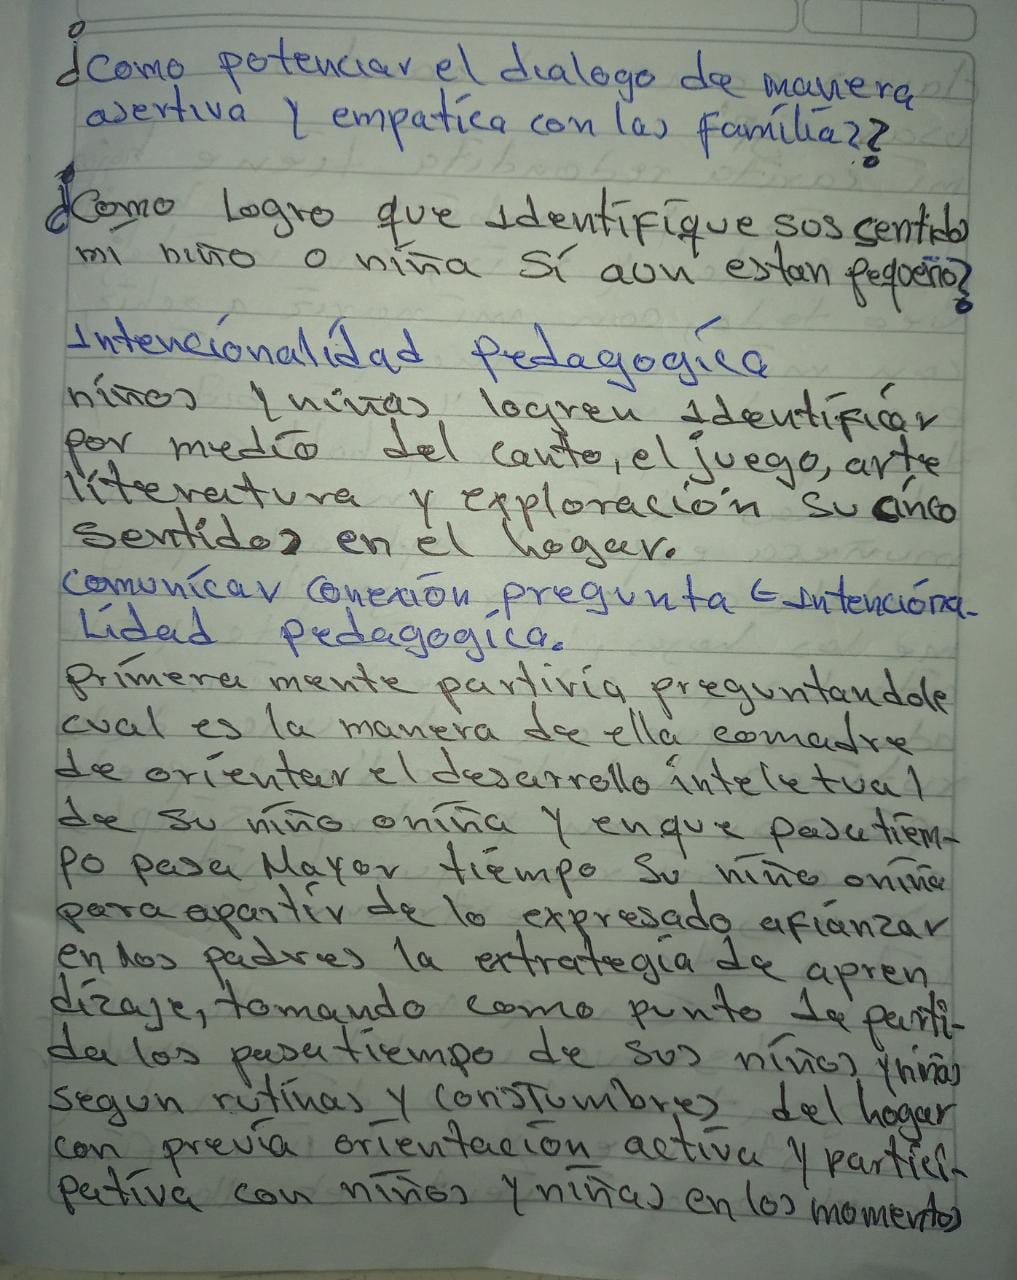 ¿Como potenciar el dialogo de manera
asertiva y empatíca con las Famílías?
¿Como Logro que Identifíque sos sentido
mi niño o niña Sí aun estan pequeño?
Intencíonalídad pedagogíca
níños y niñas logren Identífícar
por medío del canto, el juego, arte
líteratura y exploracíón su cinco
Sentídos en el hogar.
comunícar Conexíón pregunta e Intencíona-
Lídad pedagogíca.
Prímera mente partiría preguntandole
cual es la manera de ella comadre
de oríentar el desarrollo íntelectual
de su níño oniña y enque pasatíem-
po pasa Mayor tíempo Su níño oniña
para apartír de lo expresado afíanzar
en los padres la extrategía de apren
dízaje, tomando como punto de partí-
da los pasatíempo de sus níños yniñas
segun rutínas y Constumbres del hogar
con prevía oríentacíón actíva y partíci-
patíva con níños y niñas en los momentos